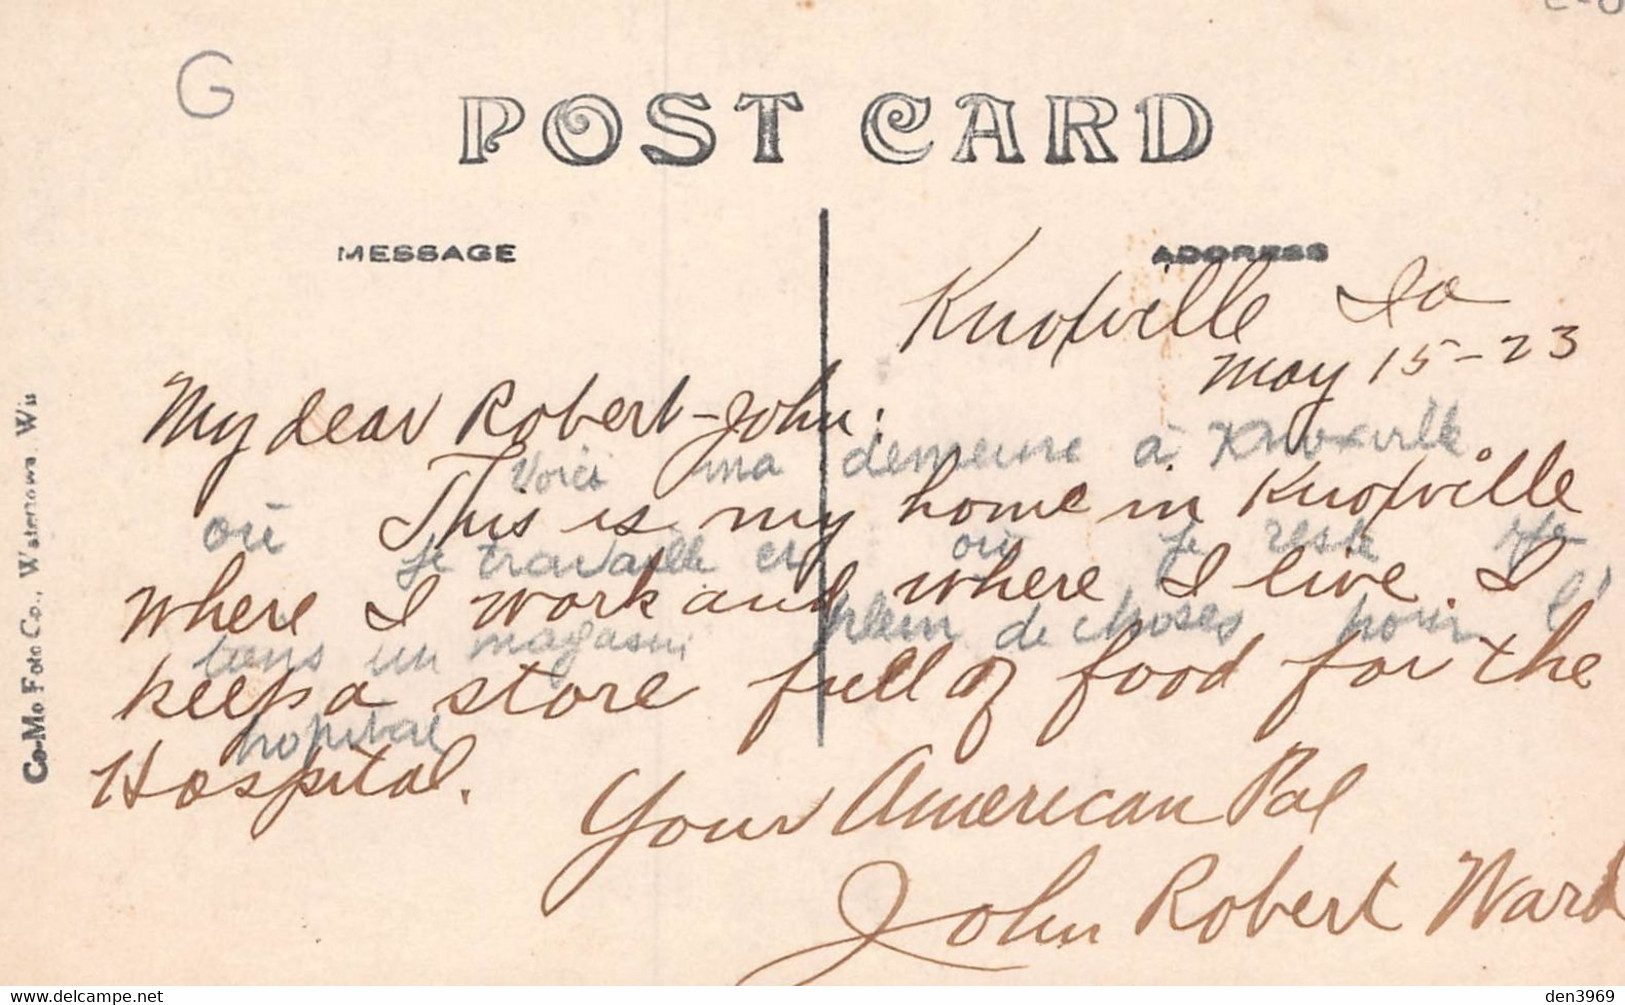 G
POST CARD
MESSAGE
ADDRESS
Knoxville Ia
May 15-23
My dear Robert-John:
Voici ma demeure à Knoxville
This is my home in Knoxville
où je travaille et où je reste Je
where I work and where I live. I
tiens un magasin plein de choses pour l'
keep a store full of food for the
hopital
Hospital.
Your American Pal
John Robert Ward
Co-Mo Foto Co., Watertown, Wis
den3969